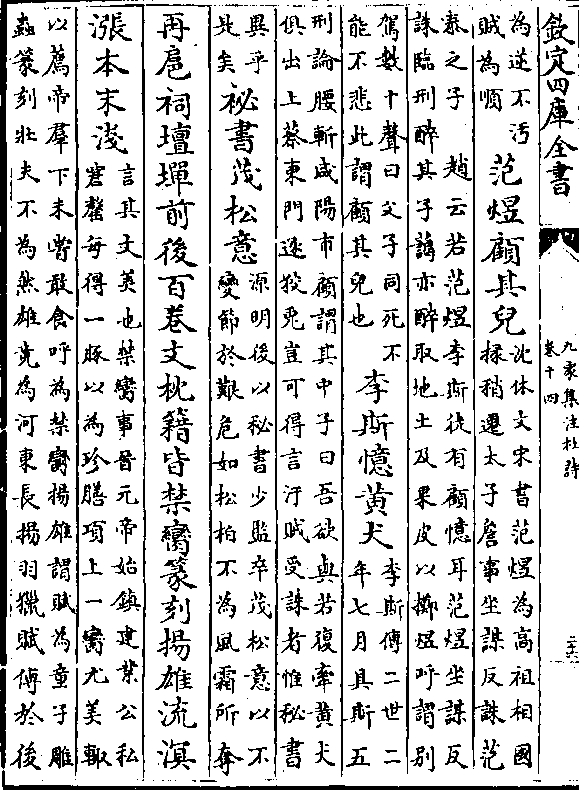 欽定四庫全書
九家集注杜詩
卷十四
二十六
為逆不汚
賊為順
范煜顧其兒
沈休文宋書范煜為高祖相國
掾稍遷太子詹事坐謀反誅范
泰之子
趙云若范煜李斯徒有顧憶耳范煜坐謀反
誅臨刑醉其子藹亦醉取地土及果皮以擲煜呼謂別
駕數十聲曰父子同死不
能不悲此謂顧其兒也
李斯憶黃犬
李斯傳二世二
年七月具斯五
刑論腰斬咸陽市顧謂其中子曰吾欲與若復牽黃犬
俱出上蔡東門逐狡兎豈可得言汙賊受誅者惟秘書
異乎
此矣
祕書茂松意
源明後以秘書少監卒茂松意以不
變節於艱危如松柏不為風霜所奪
再扈祠壇墠前後百卷文枕籍皆禁臠篆刻揚雄流溟
漲本末淺
言其文美也禁臠事晉元帝始鎮建業公私
窘罄每得一豚以為珍膳項上一臠尤美輙
以薦帝羣下未甞敢食呼為禁臠揚雄謂賦為童子雕
蟲篆刻壯夫不為然雄竟為河東長揚羽獵賦傳於後